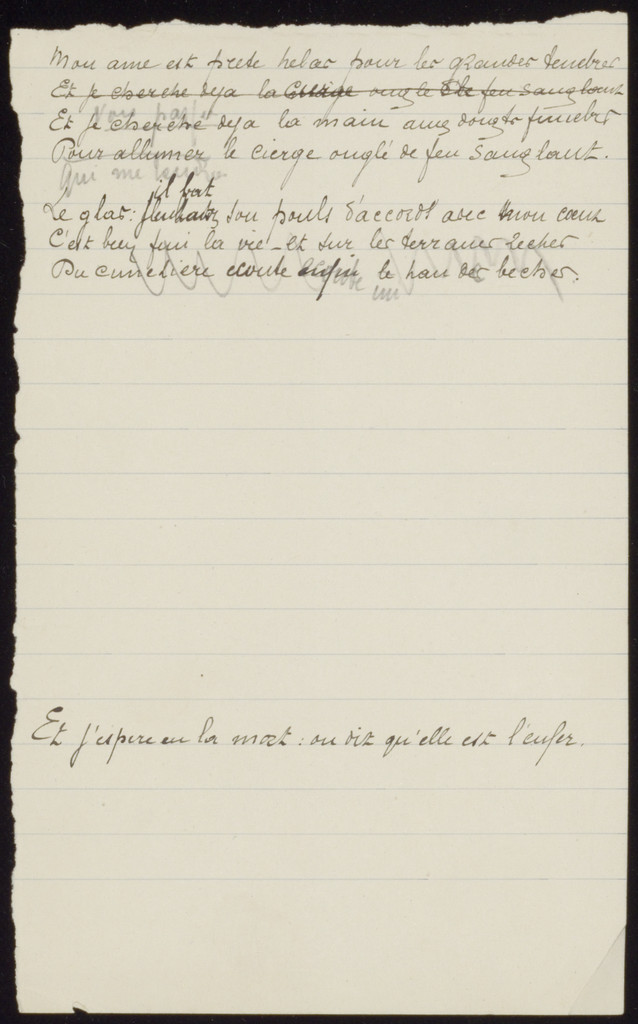 Mon ame est prete helas pour les grandes tenebres
Et je cherche deja la cierge ongle de feu sanglant
Vois
Et je cherche deja la main aux doigts funebres
Pour allumer le cierge onglé de feu sanglant.
Qui me
il bat
Le glas: son pouls d'accord avec mon cœur
C'est bien fini la vie - et sur les terraux seches
Du cimetiere ecoute enfin le han des beches.
un
Et j'espere en la mort: on dit qu'elle est l'enfer.